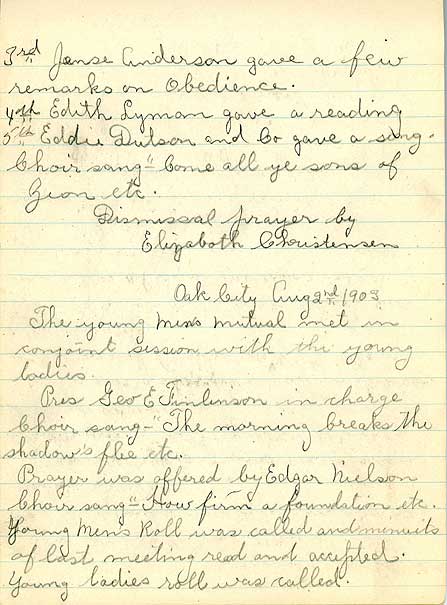 3rd Jense Anderson gave a few
remarks on Obedience.
4th Edith Lyman gave a reading
5th Eddie Dutson and Co gave a song.
Choir sang "Come all ye sons of
Zion etc.
Dismissal prayer by
Elizaboth Christensen
Oak City Aug 2nd 1903
The young mens mutual met in
conjoint session with the young
ladies.
Pres Geo E Finlinson in charge
Choir sang "The morning breaks the
shadow's flee etc.
Prayer was offered by Edgar Nielson
Choir sang "How firm a foundation etc.
Young Mens Roll was called and minuits
of last meeting read and accepted.
Young ladies roll was called.